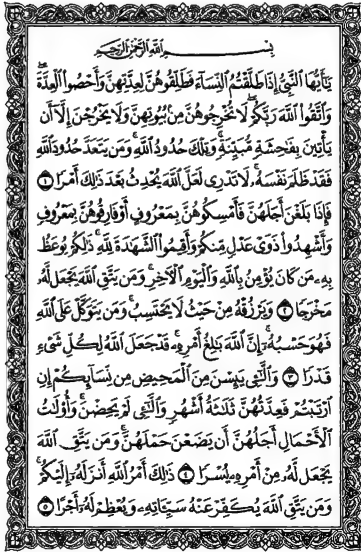 بِسْمِ اللَّهِ الرَّحْمَٰنِ الرَّحِيمِ
يَا أَيُّهَا النَّبِيُّ إِذَا طَلَّقْتُمُ النِّسَاءَ فَطَلِّقُوهُنَّ لِعِدَّتِهِنَّ وَأَحْصُوا الْعِدَّةَ
وَاتَّقُوا اللَّهَ رَبَّكُمْ لَا تُخْرِجُوهُنَّ مِنْ بُيُوتِهِنَّ وَلَا يَخْرُجْنَ إِلَّا أَنْ
يَأْتِينَ بِفَاحِشَةٍ مُبَيِّنَةٍ وَتِلْكَ حُدُودُ اللَّهِ وَمَنْ يَتَعَدَّ حُدُودَ اللَّهِ
فَقَدْ ظَلَمَ نَفْسَهُ لَا تَدْرِي لَعَلَّ اللَّهَ يُحْدِثُ بَعْدَ ذَٰلِكَ أَمْرًا ١
فَإِذَا بَلَغْنَ أَجَلَهُنَّ فَأَمْسِكُوهُنَّ بِمَعْرُوفٍ أَوْ فَارِقُوهُنَّ بِمَعْرُوفٍ
وَأَشْهِدُوا ذَوَىْ عَدْلٍ مِنْكُمْ وَأَقِيمُوا الشَّهَادَةَ لِلَّهِ ذَٰلِكُمْ يُوعَظُ
بِهِ مَنْ كَانَ يُؤْمِنُ بِاللَّهِ وَالْيَوْمِ الْآخِرِ وَمَنْ يَتَّقِ اللَّهَ يَجْعَلْ لَهُ
مَخْرَجًا ٢ وَيَرْزُقْهُ مِنْ حَيْثُ لَا يَحْتَسِبُ وَمَنْ يَتَوَكَّلْ عَلَى اللَّهِ
فَهُوَ حَسْبُهُ إِنَّ اللَّهَ بَالِغُ أَمْرِهِ قَدْ جَعَلَ اللَّهُ لِكُلِّ شَىْءٍ
قَدْرًا ٣ وَالَّٰئِى يَئِسْنَ مِنَ الْمَحِيضِ مِنْ نِسَائِكُمْ إِنِ
ارْتَبْتُمْ فَعِدَّتُهُنَّ ثَلَاثَةُ أَشْهُرٍ وَالَّٰئِى لَمْ يَحِضْنَ وَأُولَاتُ
الْأَحْمَالِ أَجَلُهُنَّ أَنْ يَضَعْنَ حَمْلَهُنَّ وَمَنْ يَتَّقِ اللَّهَ
يَجْعَلْ لَهُ مِنْ أَمْرِهِ يُسْرًا ٤ ذَٰلِكَ أَمْرُ اللَّهِ أَنْزَلَهُ إِلَيْكُمْ
وَمَنْ يَتَّقِ اللَّهَ يُكَفِّرْ عَنْهُ سَيِّئَاتِهِ وَيُعْظِمْ لَهُ أَجْرًا ٥